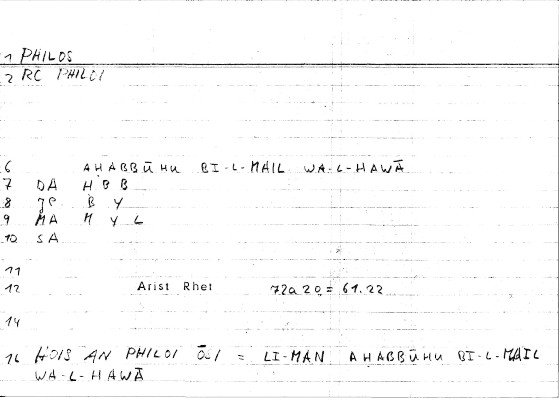 1 PHILOS
2 RC PHILOI
6 AHABBŪHU BI-L-MAIL WA-L-HAWĀ
7 DA H B B
8 JP B Y
9 MA M Y L
10 SA
11
12 Arist Rhet 72a20 = 61.22
14
16 HOIS AN PHILOI ŌSI = LI-MAN AHABBŪHU BI-L-MAIL
WA-L-HAWĀ